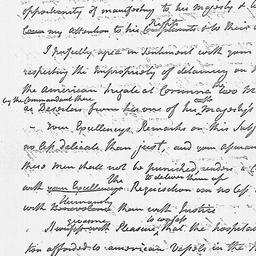 opportunity of manifesting to his Majesty &
rights
my attention to his Complaints & to their
I perfectly agree in Sentiment with your
respecting the impropriety of detaining on
the American frigate at Corunna two
by the Commandant there
as Deserters from his one of his Majesty's
Your Excellency's Remarks on this Sub
no less delicate than just, and your
these men shall not be punished renders a
the to deliver them up
with your Excellency's Requisition can no less
Humanity
with than with Justice
to confess
with Pleasure, that the hospita
tion afforded to american Vessels in the